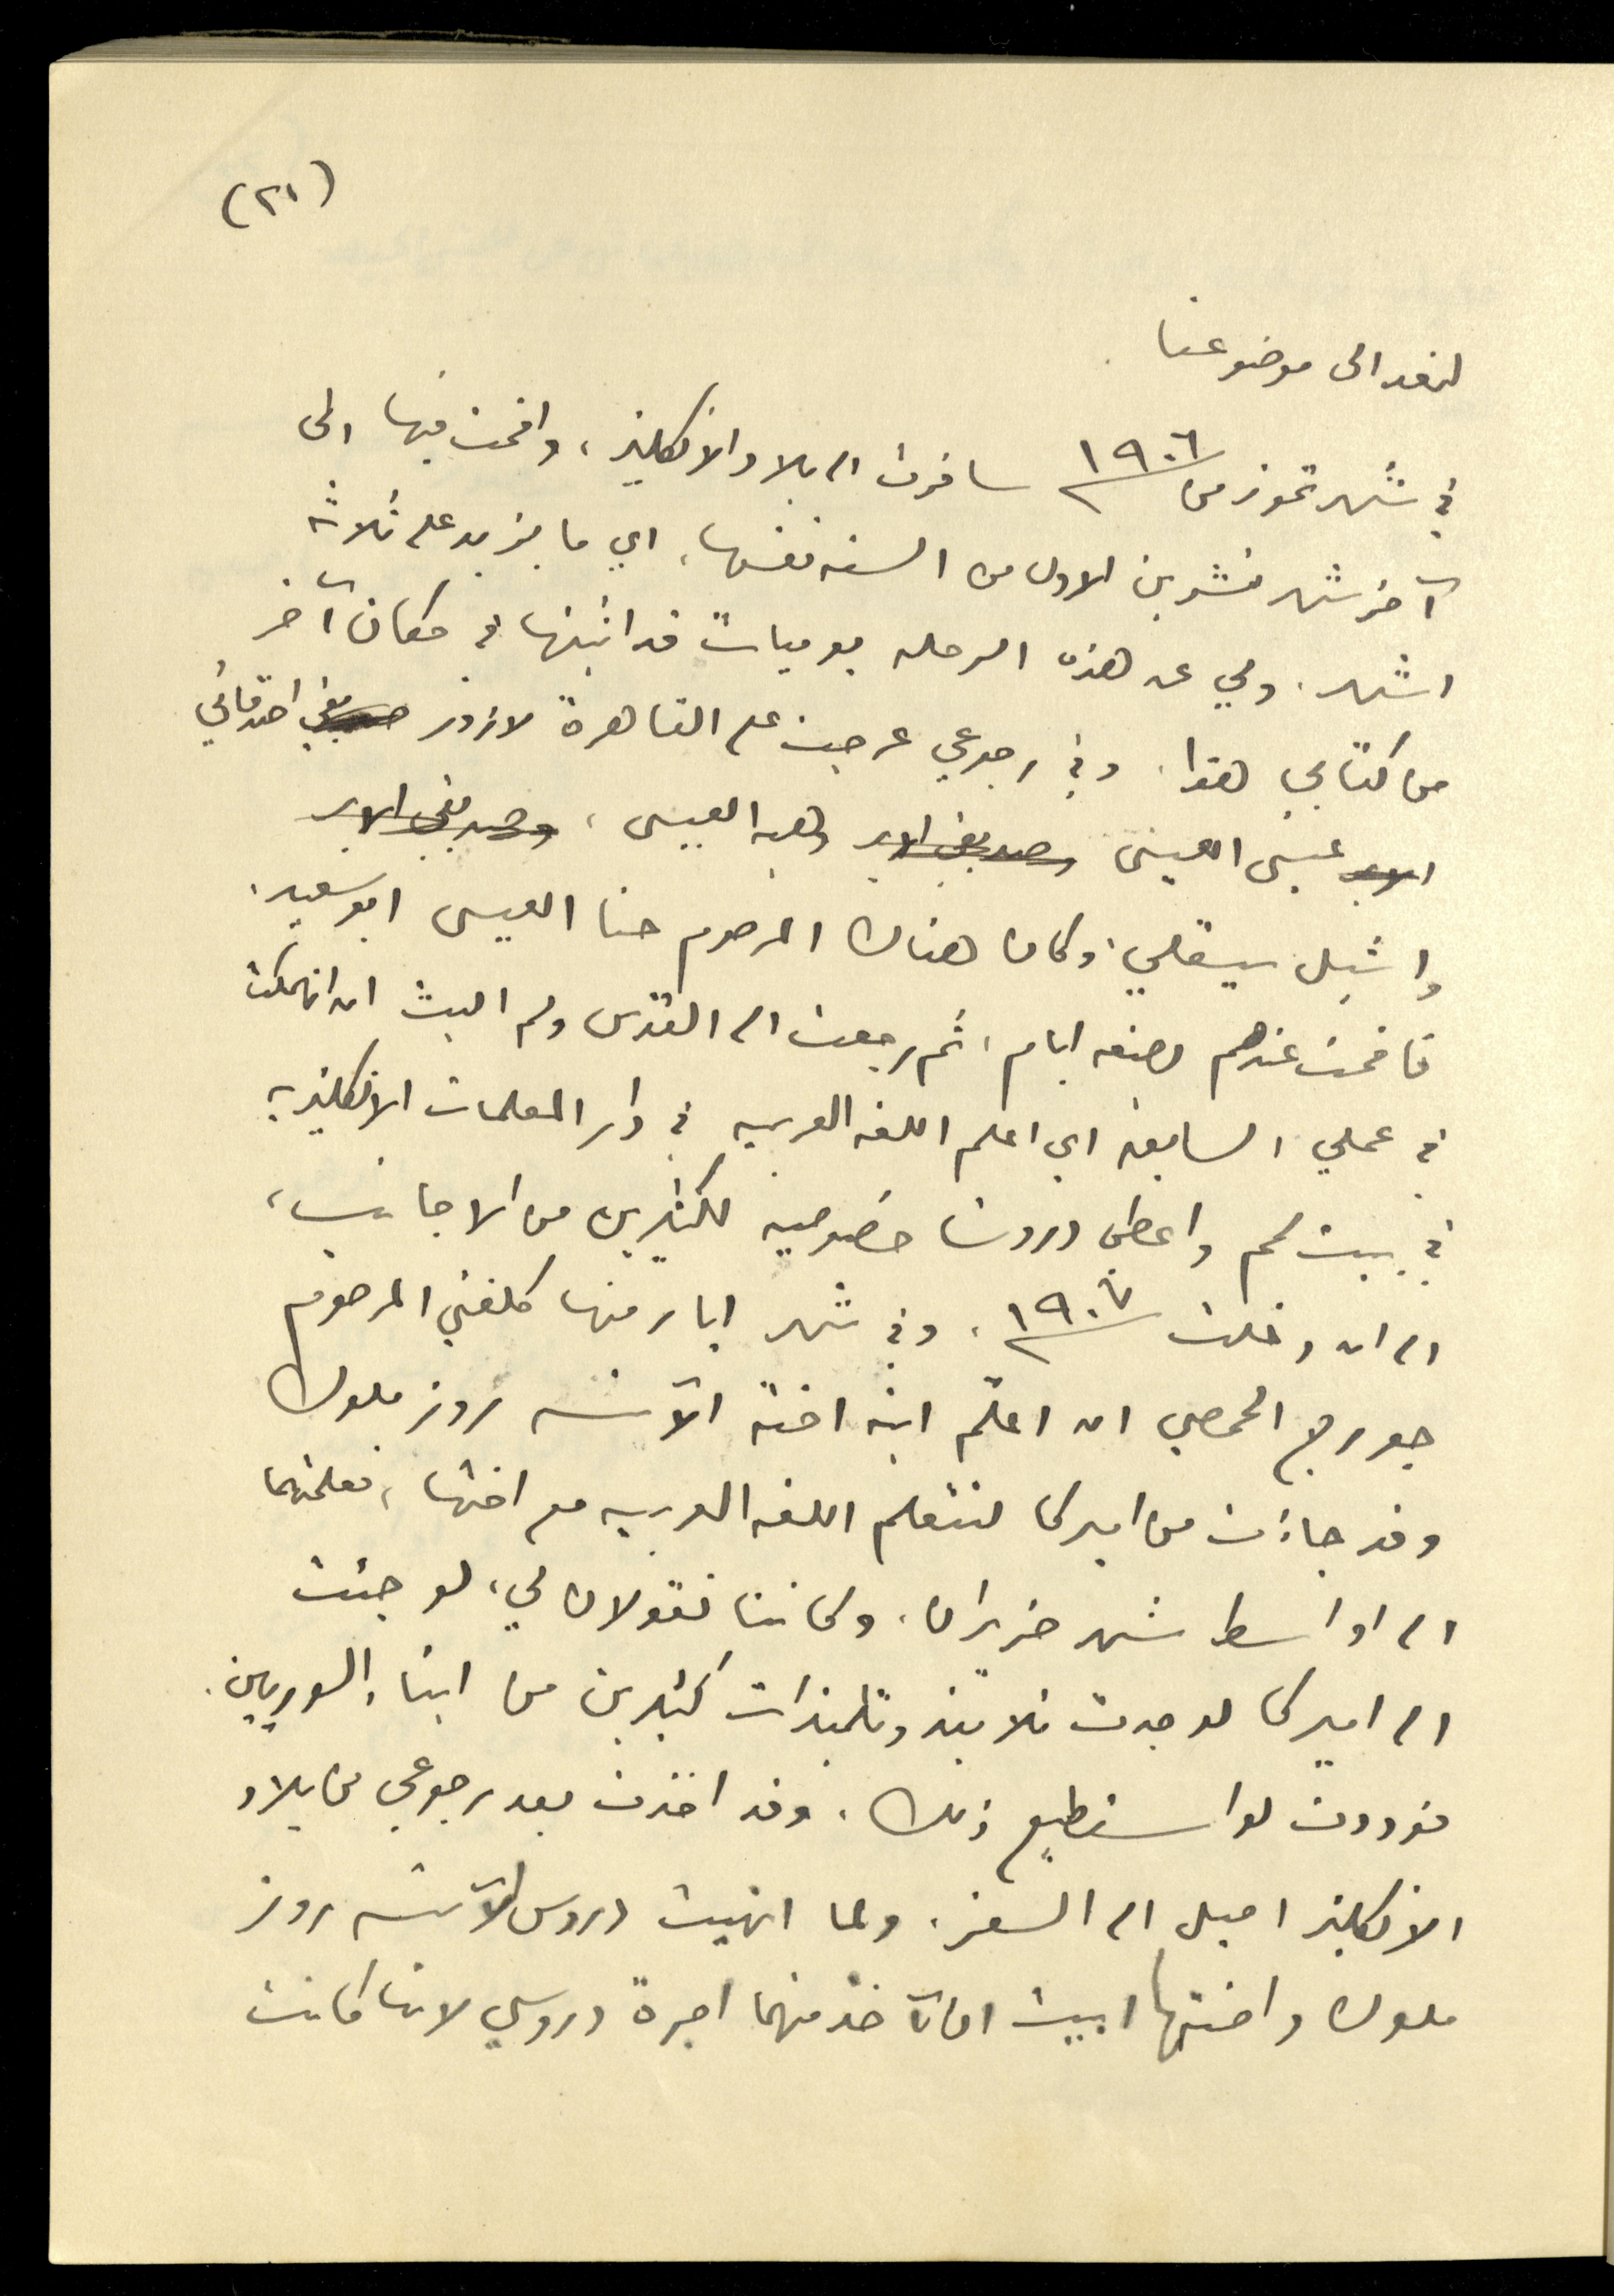 (٢١)
لنعد الى موضوعنا
في شهر تموز من ١٩٠٦ سافرت الى بلاد الانكليز، واقمت فيها الى
آخر شهر تشرين الاول من السنه نفسها، اي ما يزيد على ثلاثة
اشهر. ولي عن هذه الرحله يوميات قد اثبتها في مكان آخر
من كتابي هذا. وفي رجوعي عرجت على القاهرة لازور صديقي اصدقائي
الابر عيسى العيسى وصديقي الابر وهبه العيسى، وصديقي الابر
واشيل سيقلي، وكان هناك المرحوم حنا العيسى ابو سعيد.
فاقمت عندهم بضعه ايام، ثم رجعت الى القدس ولم البث ان انهمكت
في عملي السابق اي اعلم اللغه العربيه في دار المعلمات الانكليزيه
في بيت لحم واعطي دروسا خصوصيه لكثيرين من الاجانب،
الى ان دخلت ١٩٠٧، وفي شهر ايار منها كلفني المرحوم
جورج الحمصي ان اعلّم ابنة اخته الآنسه روز ملوك
وقد جاءت من اميركا لتتعلم اللغه العربيه مع اختها، فعلمتهما
الى اواسط شهر حزيران، وكانتا تقولان لي، لو جئت
الى اميركا لوجدت تلاميذ وتلميذات كثيرين من ابناء السوريين.
فوددت لو استطيع ذلك، وقد اخذت بعد رجوعي من بلاد
الانكليز اميل الى السفر. ولما انهيت دروس الآنسه روز
ملوك واختها ابيت ان آخذ منهما اجرة دروسي لانها كانت